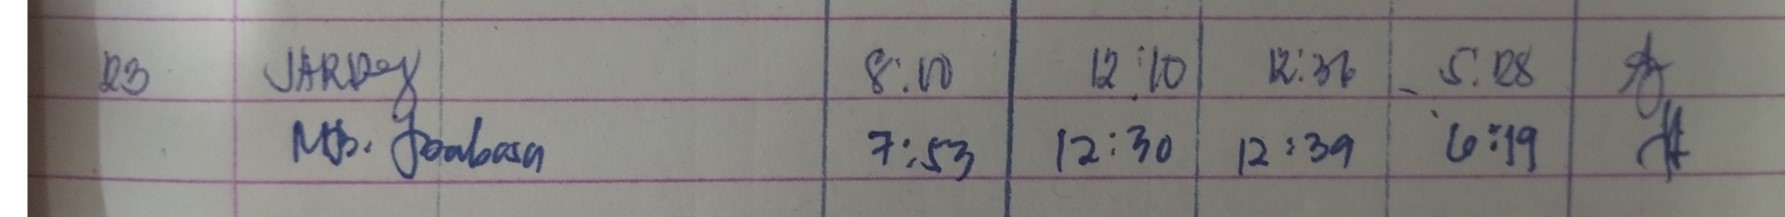 23 JARDEY 8:10 12:10 12:36 5:28
Ms. Joabasa 7:53 12:30 12:39 6:19